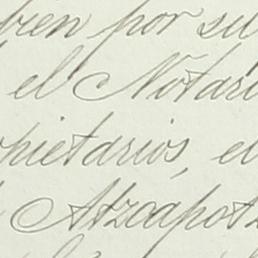 bien por su
el Notari
pietarios, el
Atzcapotz